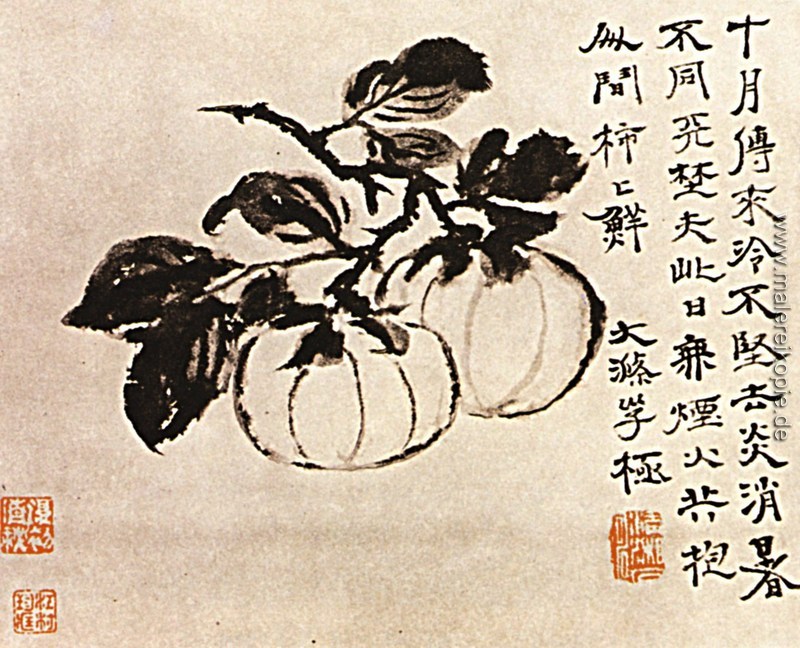 十月傳來冷不堅去炎消暑
不同埜夫此日煙火共抱
柿鮮
大滌子極
© www.malereikopie.de